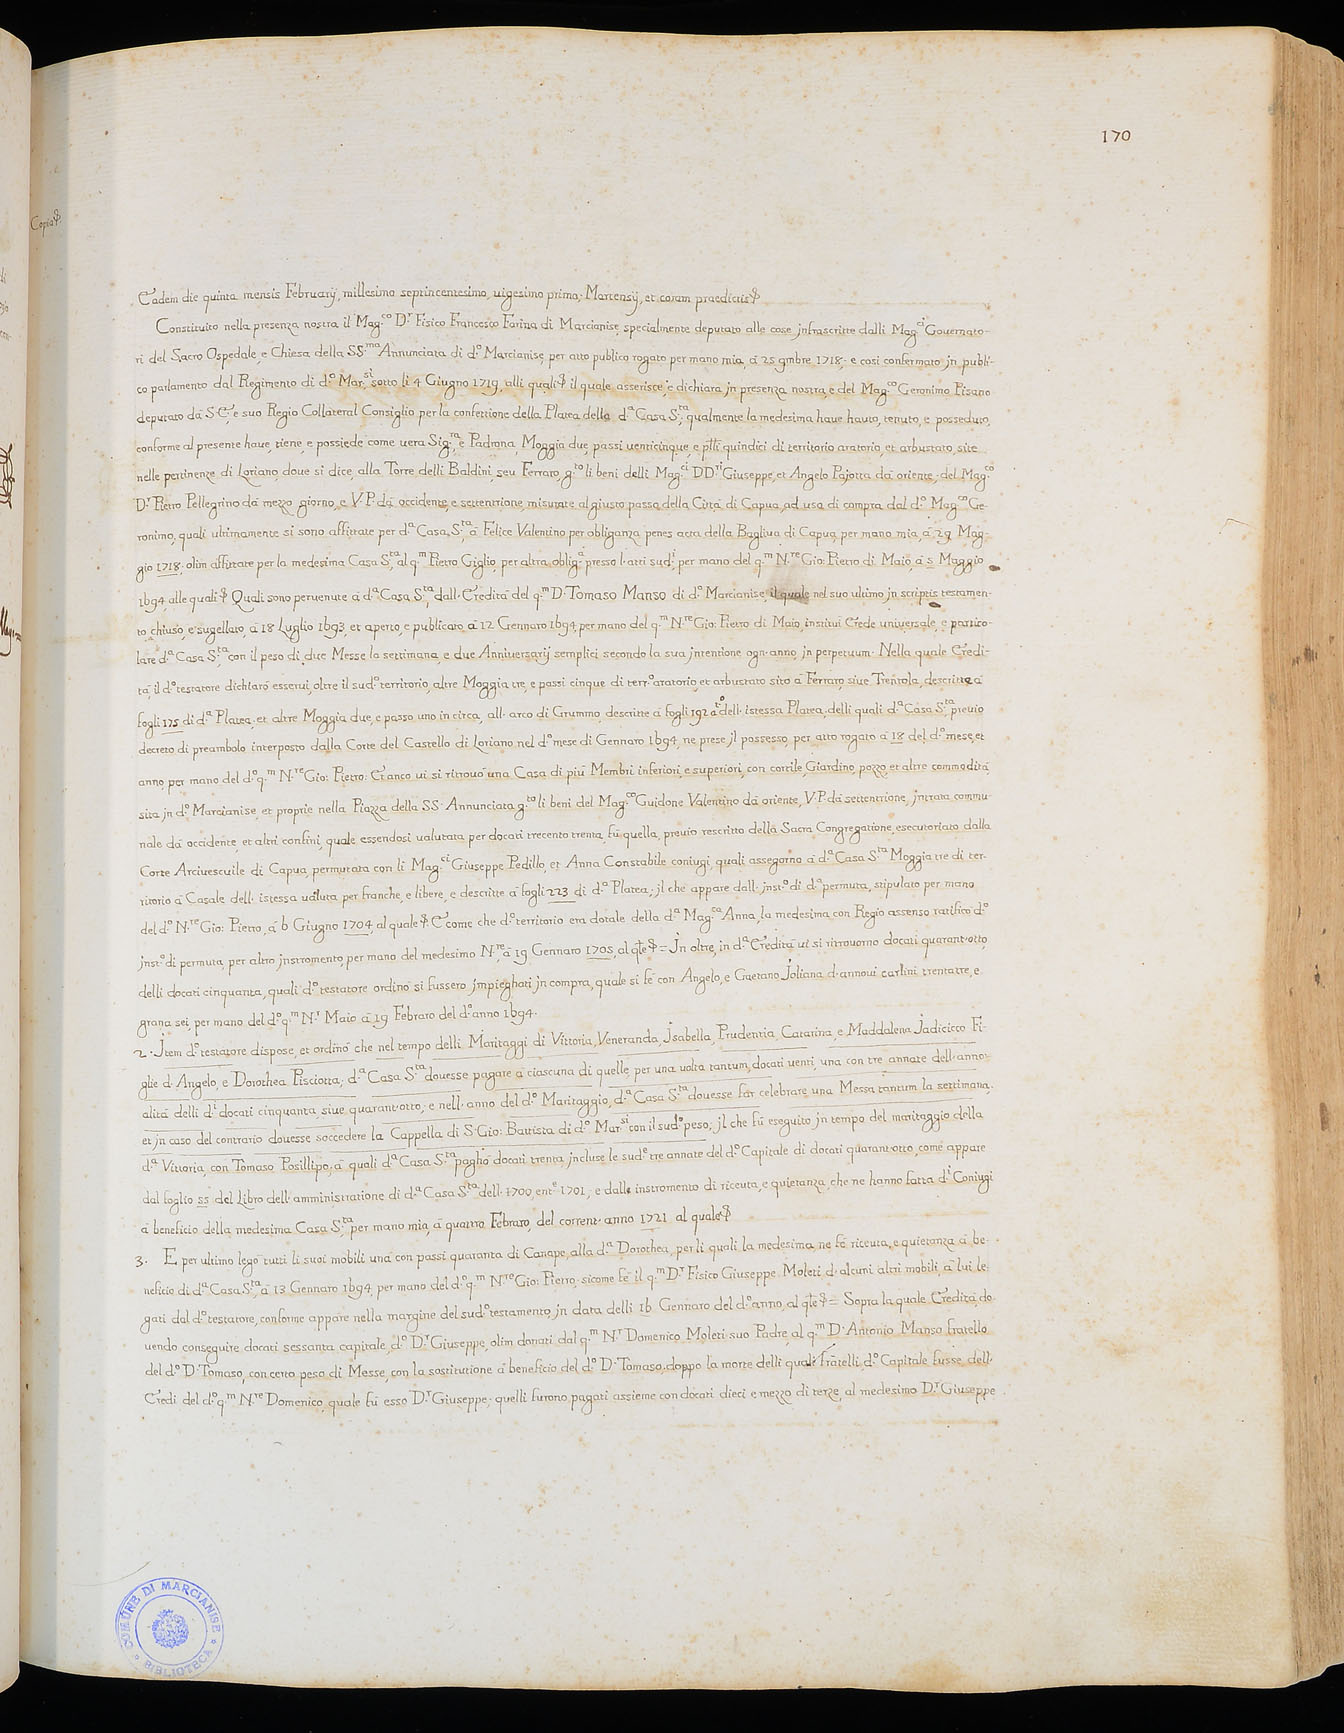 170
Copia &
Eadem die quinta mensis Februarij, millesimo septincentesimo, uigesimo primo, Martensij, et coram praedictis &
Constituito nella presenza nostra il Mag.co D.r Fisico Francesco Farina di Marcianise, specialmente deputato alle cose jnfrascritte dalli Mag.ci Gouernato-
ri del Sacro Ospedale, e Chiesa della SS.ma Annunciata di d.o Marcianise, per atto publico rogato per mano mia, à 25 9mbre 1718, e così confermato jn publi-
co parlamento dal Regimento di d.o Mar.si sotto li 4 Giugno 1719, alli quali & il quale asserisce, e dichiara jn presenza nostra, e del Mag.co Geronimo Pisano
deputato dà S.E., e suo Regio Collateral Consiglio per la confettione della Platea della d.a Casa S.ta, qualmente la medesima haue hauto, tenuto, e posseduto,
conforme al presente haue, tiene, e possiede come uera Sig.ra, e Padrona, Moggia due, passi uenticinque, e p.lli quindici di territorio aratorio, et arbustato, site
nelle pertinenze di Loriano, doue si dice, alla Torre delli Baldini, seu Ferraro, g.to li beni delli Mag.ci DD.ri Giuseppe, et Angelo Pajotta dà oriente, del Mag.co
D.r Pietro Pellegrino dà mezzo giorno, e V.P. dà occidente, e settentrione, misurate al giusto passo della Città di Capua, ad uso di compra dal d.o Mag.co Ge-
ronimo, quali ultimamente si sono affittate per d.a Casa S.ta à Felice Valentino per obliganza penes acta della Bagliua di Capua, per mano mia, à 29 Mag-
gio 1718, olim affittate per la medesima Casa S.ta al q.m Pietro Giglio, per altra oblig.a presso l'atti sud.i, per mano del q.m N.re Gio: Pietro di Maio, à 5 Maggio
1694, alle quali & Quali sono peruenute à d.a Casa S.ta dall'Eredità del q.m D. Tomaso Manso di d.o Marcianise, il quale nel suo ultimo, jn scriptis testamen-
to, chiuso, e sugellato, à 18 Luglio 1693, et aperto, e publicato, à 12 Gennaro 1694, per mano del q.m N.re Gio: Pietro di Maio, instituì Erede uniuersale, e partico-
lare d.a Casa S.ta con il peso di due Messe la settimana, e due Anniuersarij semplici secondo la sua jntentione ogn'anno, jn perpetuum. Nella quale Eredi-
tà, il d.o testatore dichiarò esserui, oltre il sud.o territorio, altre Moggia tre, e passi cinque di terr.o aratorio, et arbustato sito à Ferraro, siue Trentola, descritte à
fogli 175 di d.a Platea, et altre Moggia due, e passo uno in circa, all'arco di Grummo, descritte à fogli 192 a t.o dell'istessa Platea, delli quali d.a Casa S.ta, preuio
decreto di preambolo interposto dalla Corte del Castello di Loriano nel d.o mese di Gennaro 1694, ne prese jl possesso, per atto rogato à 18 del d.o mese, et
anno, per mano del d.o q.m N.re Gio: Pietro: Et anco ui si ritrouò una Casa di più Membri inferiori, e superiori, con cortile, Giardino, pozzo, et altre commodità,
sita jn d.o Marcianise, et proprie nella Piazza della SS. Annunciata, g.to li beni del Mag.co Guidone Valentino dà oriente, V.P. dà settentrione, jntrata commu-
nale dà occidente, et altri confini, quale essendosi ualutata per docati trecento trenta, fù quella, preuio rescritto della Sacra Congregatione, esecutoriato dalla
Corte Arciuescuile di Capua, permutata con li Mag.ci Giuseppe Pedillo, et Anna Constabile coniugi, quali assegorno à d.a Casa S.ta Moggia tre di ter-
ritorio à Casale dell'istessa ualuta per franche, e libere, e descritte à fogli 223 di d.a Platea; jl che appare dall'jnst.o di d.a permuta, stipulato per mano
del d.o N.re Gio: Pietro, à 6 Giugno 1704, al quale & E come che d.o territorio era dotale della d.a Mag.ca Anna, la medesima con Regio assenso ratificò d.o
jnst.o di permuta, per altro jnstromento, per mano del medesimo N.re, à 19 Gennaro 1705, al q.le & = Jn oltre, in d.a Eredità ui si ritrouorno docati quarant'otto,
delli docati cinquanta, quali d.o testatore ordinò si fussero jmpieghati jn compra, quale si fè con Angelo, e Gaetano Joliana d'annoui carlini trentatre, e
grana sei, per mano del d.o q.m N.r Maio à 19 Febraro del d.o anno 1694.
2. Jtem d.o testatore dispose, et ordinò che nel tempo delli Maritaggi di Vittoria, Veneranda, Jsabella, Prudentia, Catarina, e Maddalena Jadicicco Fi-
glie d'Angelo, e Dorothea Pisciotta; d.a Casa S.ta douesse pagare à ciascuna di quelle, per una uolta tantum, docati uenti, una con tre annate dell'anno-
alità delli d.i docati cinquanta, siue quarant'otto, e nell'anno del d.o Maritaggio, d.a Casa S.ta douesse far celebrare una Messa tantum la settimana,
et jn caso del contrario douesse soccedere la Cappella di S. Gio: Battista di d.o Mar.si con il sud.o peso; jl che fù eseguito jn tempo del maritaggio della
d.a Vittoria, con Tomaso Posillipo, à quali d.a Casa S.ta paghò docati trenta, jncluse le sud.e tre annate del d.o Capitale di docati quarant'otto, come appare
dal foglio 55 del Libro dell'amministratione di d.a Casa S.ta dell'1700, ent.e 1701, e dalle instromento di riceuta, e quietanza, che ne hanno fatta d.i Coniugi
à beneficio della medesima Casa S.ta, per mano mia, à quattro Febraro, del corrent'anno 1721 al quale &
3. E per ultimo legò tutti li suoi mobili una con passi quaranta di Canape, alla d.a Dorothea, per li quali la medesima ne fè riceuta, e quietanza à be-
neficio di d.a Casa S.ta, à 13 Gennaro 1694, per mano del d.o q.m N.re Gio: Pietro, sicome fè il q.m D.r Fisico Giuseppe Moleti d'alcuni altri mobili, à lui le-
gati dal d.o testatore, conforme appare nella margine del sud.o testamento, jn data delli 16 Gennaro del d.o anno, al q.le & = Sopra la quale Eredità, do-
uendo conseguire docati sessanta capitale, d.o D.r Giuseppe, olim donati dal q.m N.r Domenico Moleti suo Padre, al q.m D. Antonio Manso fratello
del d.o D. Tomaso, con certo peso di Messe, con la sostitutione à beneficio del d.o D. Tomaso, doppo la morte delli quali fratelli, d.o Capitale fusse dell'
Eredi del d.o q.m N.re Domenico, quale fù esso D.r Giuseppe; quelli furono pagati assieme con docati dieci e mezzo di terze, al medesimo D.r Giuseppe
COMUNE DI MARCIANISE
BIBLIOTECA